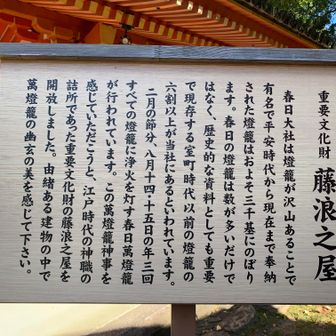 重要文化財 藤浪之屋
春日大社は燈籠が沢山あることで
有名で平安時代から現在まで奉納
された燈籠はおよそ三千基にのぼり
ます。春日の燈籠は数が多いだけで
はなく、歴史的な資料としても重要
で現存する室町時代以前の燈籠の
六割以上が当社にあるといわれています。
二月の節分、八月十四・十五日の年三回
すべての燈籠に浄火を灯す春日萬燈籠
が行われています。この萬燈籠神事を
感じていただこうと、江戸時代の神職の
詰所であった重要文化財の藤浪之屋を
開放しました。由緒ある建物の中で
萬燈籠の幽玄の美を感じて下さい。